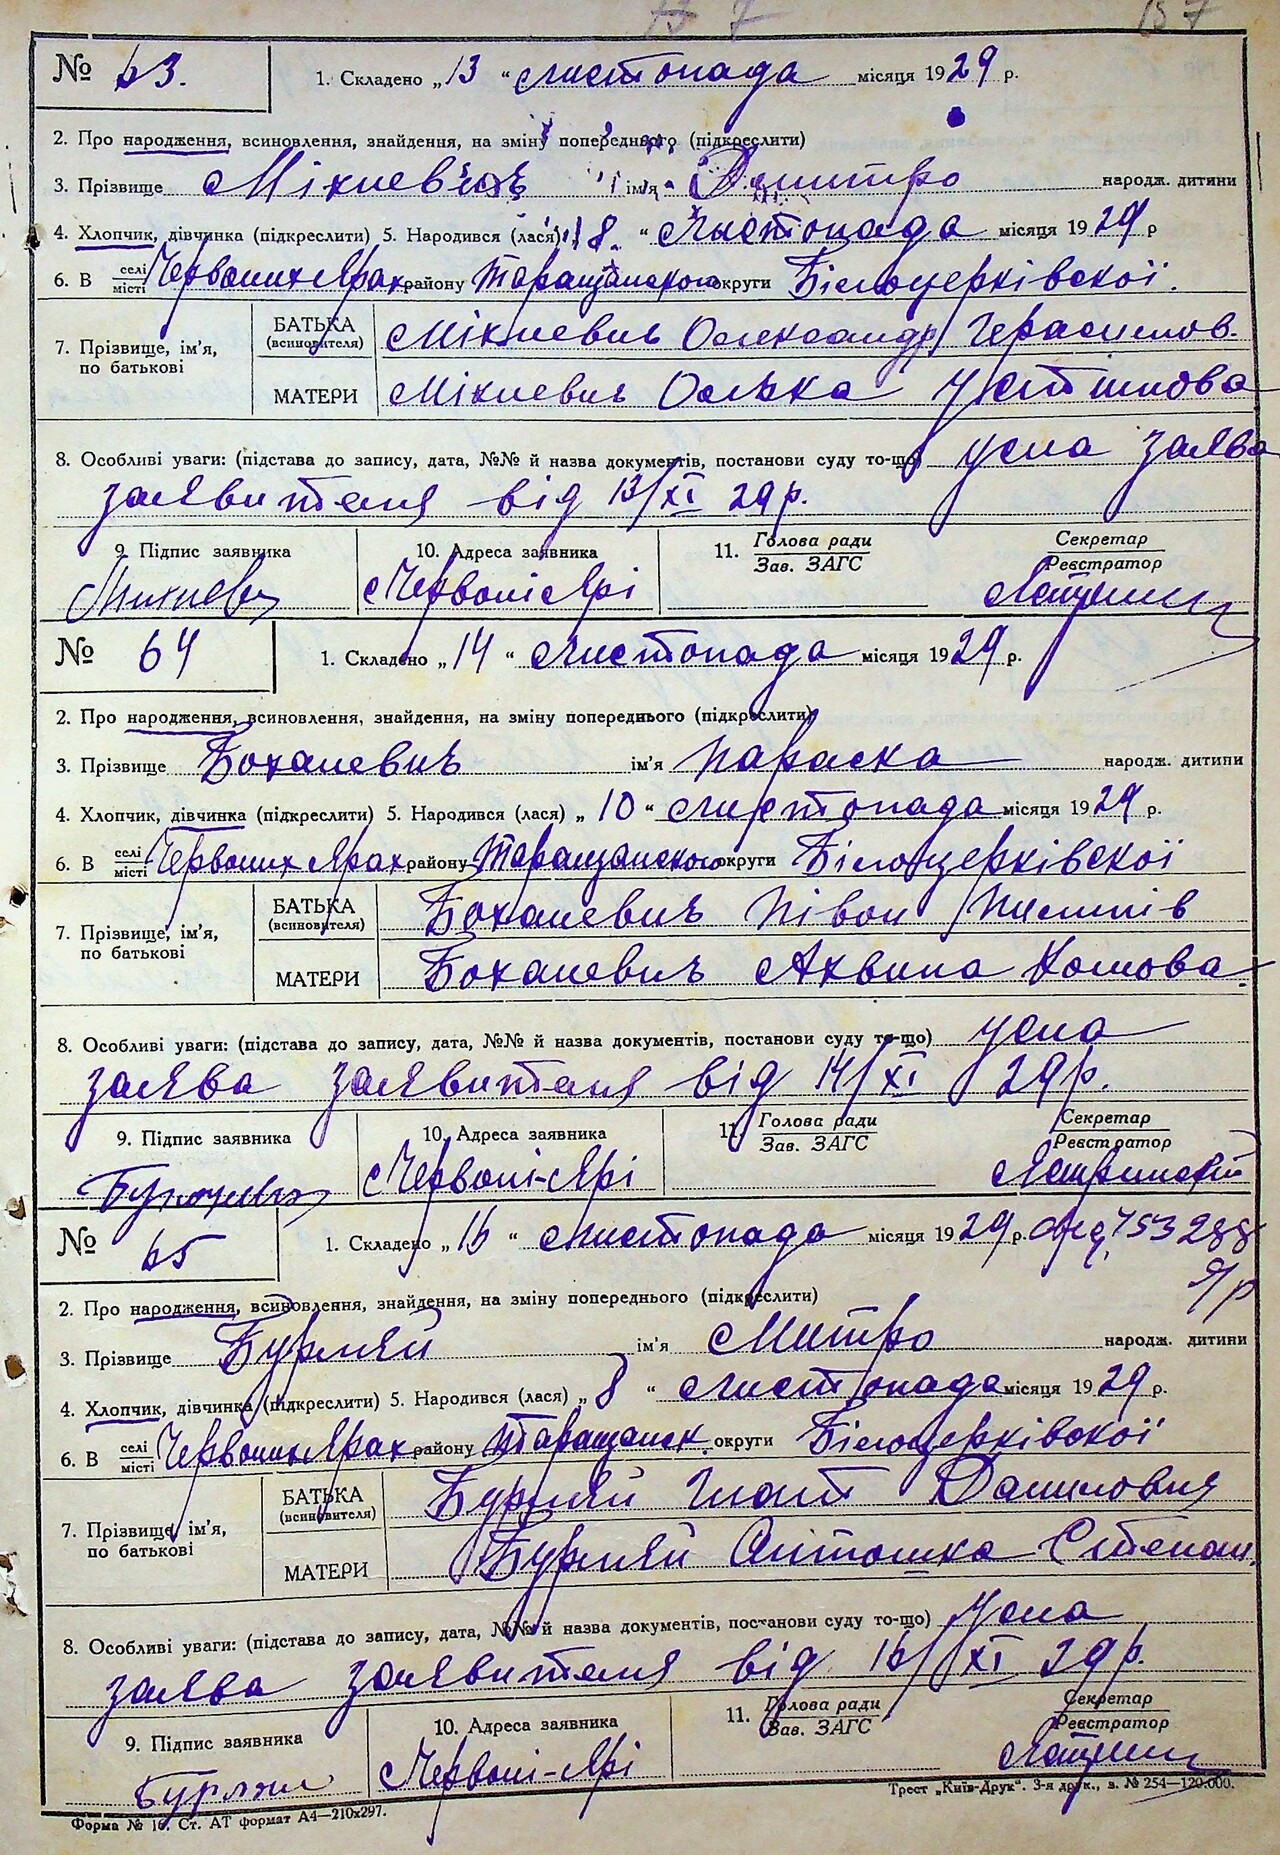 № 63. 1. Складено „13“ листопада місяця 1929 р.
2. Про народження, всиновлення, знайдення, на зміну попереднього (підкреслити)
3. Прізвище ім'я Дмитро народж. дитини
4. Хлопчик, дівчинка (підкреслити) 5. Народився (лася) „8“ Листопада місяця 1929 р
6. В селі місті Червоних Ярах району Таращанского округи Білоцерківскої.
7. Прізвище, ім'я, по батькові
БАТЬКА (всиновителя) Олександр Герасимов.
МАТЕРИ
8. Особливі уваги: (підстава до запису, дата, №№ й назва документів, постанови суду то-що) усна заява
заявителя від 13/XI 29р.
9. Підпис заявника 10. Адреса заявника 11. Голова ради Зав. ЗАГС Секретар Реєстратор
Червоні Ярі
№ 64 1. Складено „14“ листопада місяця 1929 р.
2. Про народження, всиновлення, знайдення, на зміну попереднього (підкреслити)
3. Прізвище Боханевичъ ім'я Параска народж. дитини
4. Хлопчик, дівчинка (підкреслити) 5. Народився (лася) „10“ листопада місяця 1929 р.
6. В селі місті Червоних Ярах району Таращанского округи Білоцерківскої
7. Прізвище, ім'я, по батькові
БАТЬКА (всиновителя) Боханевичъ Пилипів
МАТЕРИ Боханевичъ
8. Особливі уваги: (підстава до запису, дата, №№ й назва документів, постанови суду то-що) усна
заява заявителя від 14/XI 29р.
9. Підпис заявника 10. Адреса заявника 11. Голова ради Зав. ЗАГС Секретар Реєстратор
Червоні-Ярі
№ 65 1. Складено листопада місяця 1929 р.
2. Про народження, всиновлення, знайдення, на зміну попереднього (підкреслити)
3. Прізвище Бурляй ім'я Митро народж. дитини
4. Хлопчик, дівчинка (підкреслити) 5. Народився (лася) „8“ листопада місяця 1929 р.
6. В селі місті Червоних Ярах району Таращанск. округи Білоцерківскої
7. Прізвище, ім'я, по батькові
БАТЬКА (всиновителя) Бурляй Гнат Данилович
МАТЕРИ Бурляй Антошка Степан.
8. Особливі уваги: (підстава до запису, дата, №№ й назва документів, постанови суду то-що) Усна
заява заявителя від XI 29р.
9. Підпис заявника 10. Адреса заявника 11. Голова ради Зав. ЗАГС Секретар Реєстратор
Червоні-Ярі
Форма № 16. Ст. АТ формат А4—210х297. Трест „Київ-Друк“. 3-я друк., з. № 254—120.000.